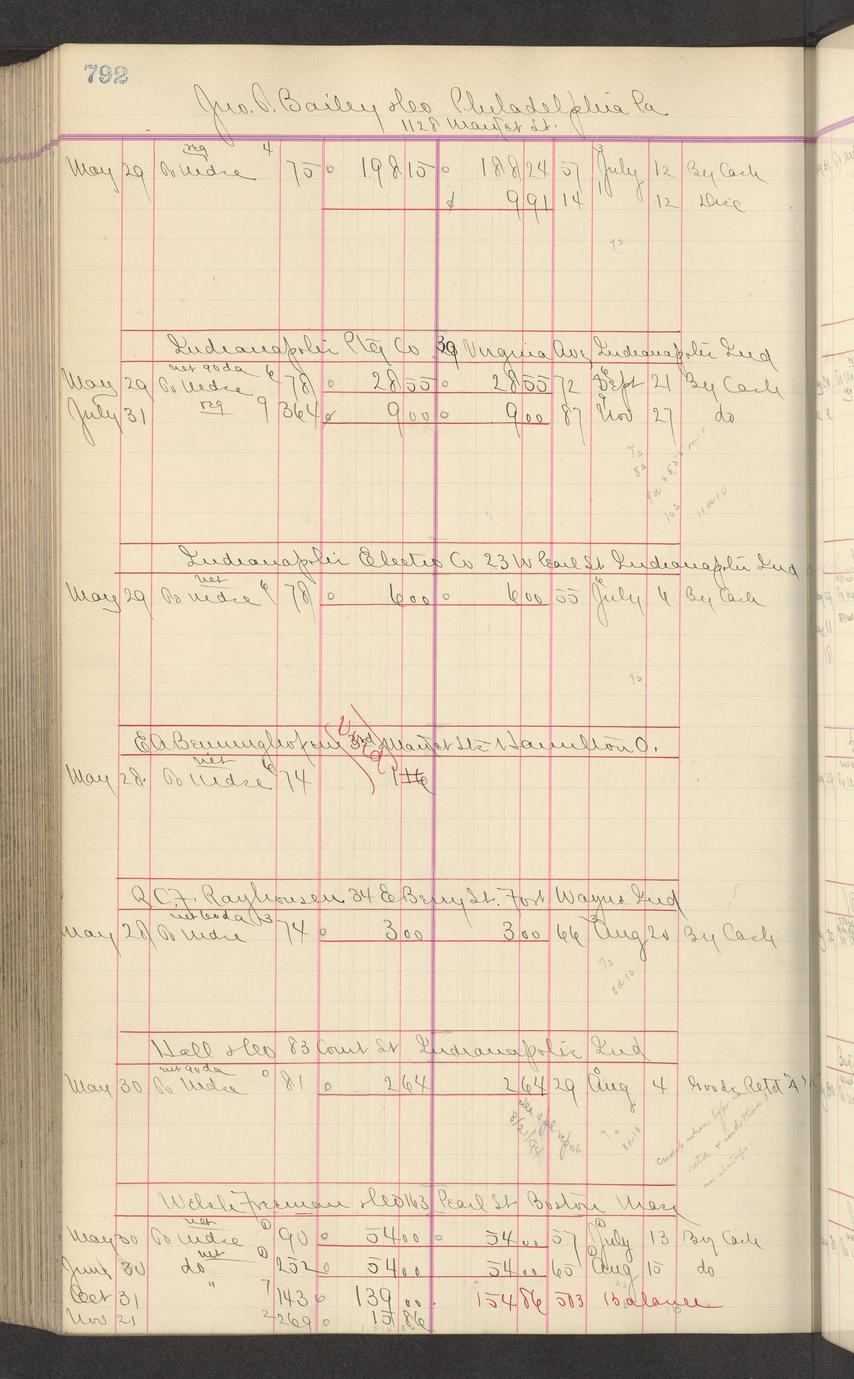 792
Jno. P. Bailey &Co Philadelphia Pa
1128 Market St.
reg 4
May 29 To Mdse 75 198 15 188 24 57 July 12 By Cash
9 91 14 12 Disc
7s
Indianapolis Ptg Co 39 Virginia Ave Indianapolis Ind
net 90 da 6
May 29 To Mdse 78 28 55 28 55 72 Sept 21 By Cash
July 31 reg 9 364 9 00 9 00 87 Nov 27 do
7s
8s
10s
Indianapolis Electro Co 23 W Pearl St Indianapolis Ind
net 6
May 29 To Mdse 78 6 00 6 00 55 July 6 By Cash
7s
E A Benninghofen 3rd & Market Sts Hamilton O.
Void
net 6
May 28 To Mdse 74 1 16
C.F. Rayhouser 34 E Berry St. Fort Wayne Ind
net 60 da 13
May 28 To Mdse 74 3 00 3 00 66 Aug 20 By Cash
7s
8d10
Hall &Co 83 Court St Indianapolis Ind
net 90 da 0
May 30 To Mdse 81 2 64 2 64 29 Aug 4 Goods Retd "A"
8/21/94
8d10
credit when type
Welsh Freeman &Co 163 Pearl St Boston Mass
net
May 30 To Mdse 90 54 00 54 00 57 July 13 By Cash
net
June 30 do 252 54 00 54 00 65 Aug 15 do
Oct 31 " 7 143 139 00 154 86 503 Balance
Nov 21 2 269 15 86